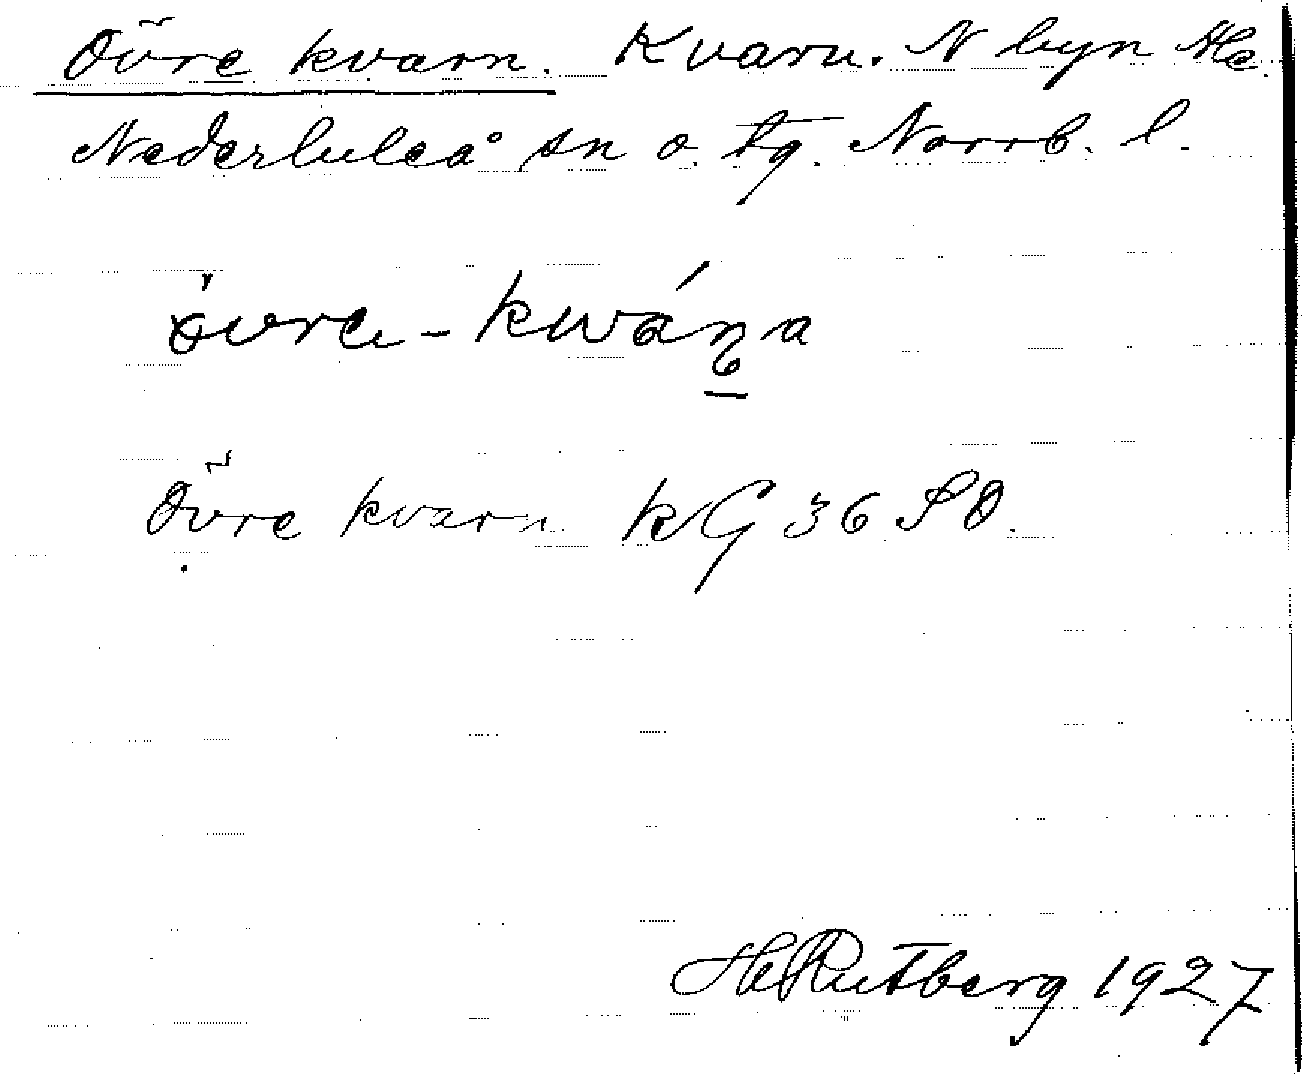 Övre kvarn. Kvarn. N byn He.
Nederluleå sn o. tg. Norrb. l.
övre-kwána
Övre kvarn kG 36 SO.
HRutberg 1927